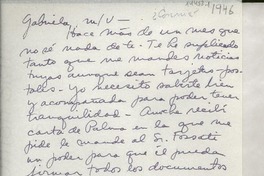 1946
Gabriela, m/v -
Hace más de un mes que
no sé nada de ti. Te he suplicado
tanto que me mandes noticias
tuyas aunque sean tarjetas pos-
tales. Yo necesito saberte bien
y acompañada para poder tener
tranquilidad. Anoche recibí
carta de Palma en la que me
pide le mande al Sr. Fossati
un poder para que él pueda
firmar todos los documentos